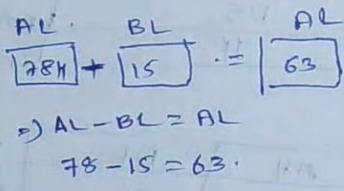 AL. BL AL
78H + 15 .= 63
=) AL - BL = AL
78 - 15 = 63.